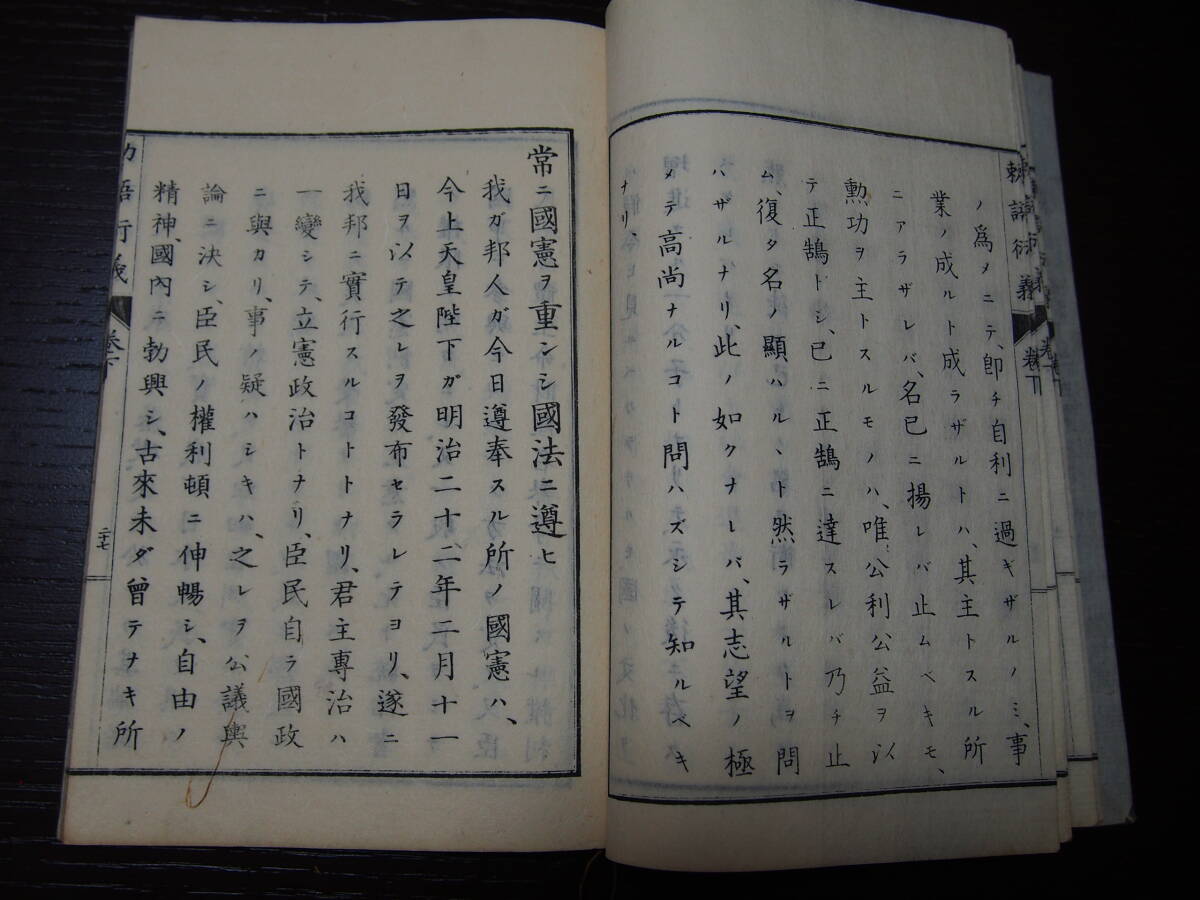 ノ爲メニテ、卽チ自利ニ過ギザルノミ、事
業ノ成ルト成ラザルトハ、其主トスル所
ニアラザレバ、名已ニ揚レバ止ムベキモ、
勲功ヲ主トスルモノハ、唯公利公益ヲ以
テ正鵠トシ、已ニ正鵠ニ達スレバ乃チ止
ム、復タ名ノ顯ハルヽト然ラザルトヲ問
ハザルナリ、此ノ如クナレバ、其志望ノ極
メテ高尚ナルコト問ハズシテ知ルベキ
ナリ、
卷下
常ニ國憲ヲ重ンシ國法ニ遵ヒ
我ガ邦人ガ今日遵奉スル所ノ國憲ハ、
今上天皇陛下ガ明治二十二年二月十一
日ヲ以テ之レヲ發布セラレテヨリ、遂ニ
我邦ニ實行スルコトトナリ、君主專治ハ
一變シテ、立憲政治トナリ、臣民自ラ國政
ニ與カリ、事ノ疑ハシキハ、之レヲ公議輿
論ニ決シ、臣民ノ權利頓ニ伸暢シ、自由ノ
精神、國內ニ勃興シ、古來未ダ曾テナキ所
卷下
二十七